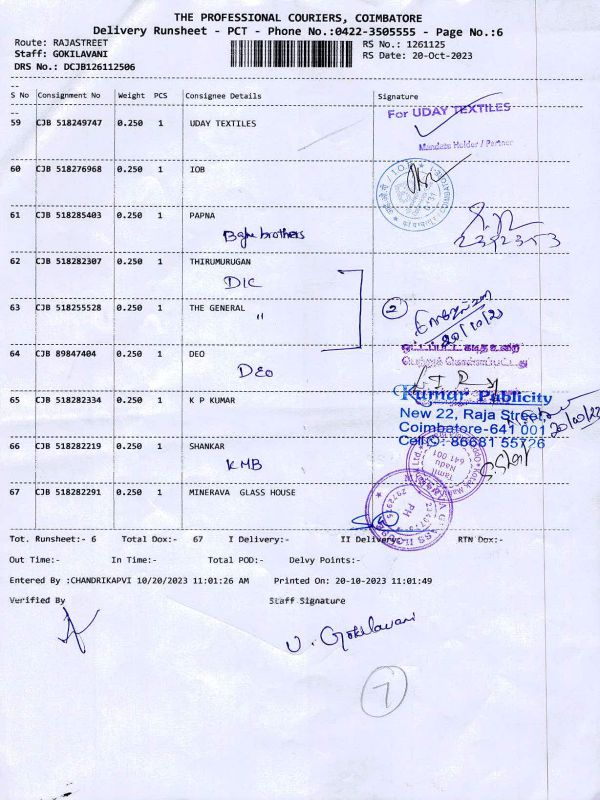 THE PROFESSIONAL COURIERS, COIMBATORE
Delivery Runsheet - PCT - Phone No.:0422-3505555 - Page No.:6
Route: RAJASTREET
RS No.: 1261125
Staff: GOKILAVANI
RS Date: 20-Oct-2023
DRS No.: DCJB126112506
S No Consignment No Weight PCS Consignee Details Signature
59 CJB 518249747 0.250 1 UDAY TEXTILES
For UDAY TEXTILES
Mandate Holder / Partner
60 CJB 518276968 0.250 1 IOB
61 CJB 518285403 0.250 1 PAPNA
brothers
62 CJB 518282307 0.250 1 THIRUMURUGAN
DIC
63 CJB 518255528 0.250 1 THE GENERAL
"
2
20/10/23
64 CJB 89847404 0.250 1 DEO
DEO
65 CJB 518282334 0.250 1 K P KUMAR
Kumar Publicity
New 22, Raja Street,
Coimbatore-641 001
Cell : 86681 55726
20/10/23
66 CJB 518282219 0.250 1 SHANKAR
KMB
Tamil
Nadu
641 001
67 CJB 518282291 0.250 1 MINERAVA GLASS HOUSE
PH
Tot. Runsheet:- 6 Total Dox:- 67 I Delivery:- II Delivery:- RTN Dox:-
Out Time:- In Time:- Total POD:- Delvy Points:-
Entered By :CHANDRIKAPVI 10/20/2023 11:01:26 AM Printed On: 20-10-2023 11:01:49
Verified By Staff Signature
V. Gokilavani
7